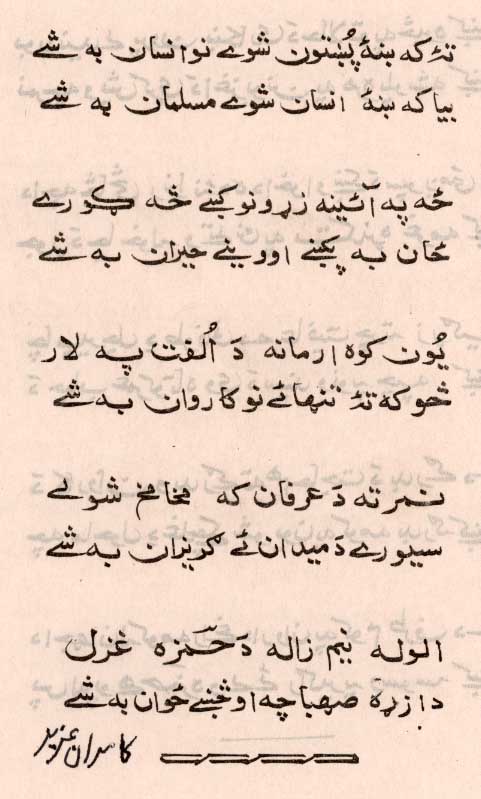 تۀ که ښۀ پُښتون شوې نو انسان به شے
بیا که ښۀ انسان شوې مسلمان به شے
څه په آئینه زړونو کښې څه ګورے
ځان به پکښے اووینے حیران به شے
یُون کوه ارمانه دَ اُلفت په لار
څو که تۀ تنهائے نو کاروان به شے
نمر ته دَ عرفان که مخامخ شولے
سیورے دَ میدان ئے ګریزان به شے
الوله نیم زاله دَ حمزه غزل
دا زړۀ صهبا چه اوڅښے ځوان به شے
کامران عزیز